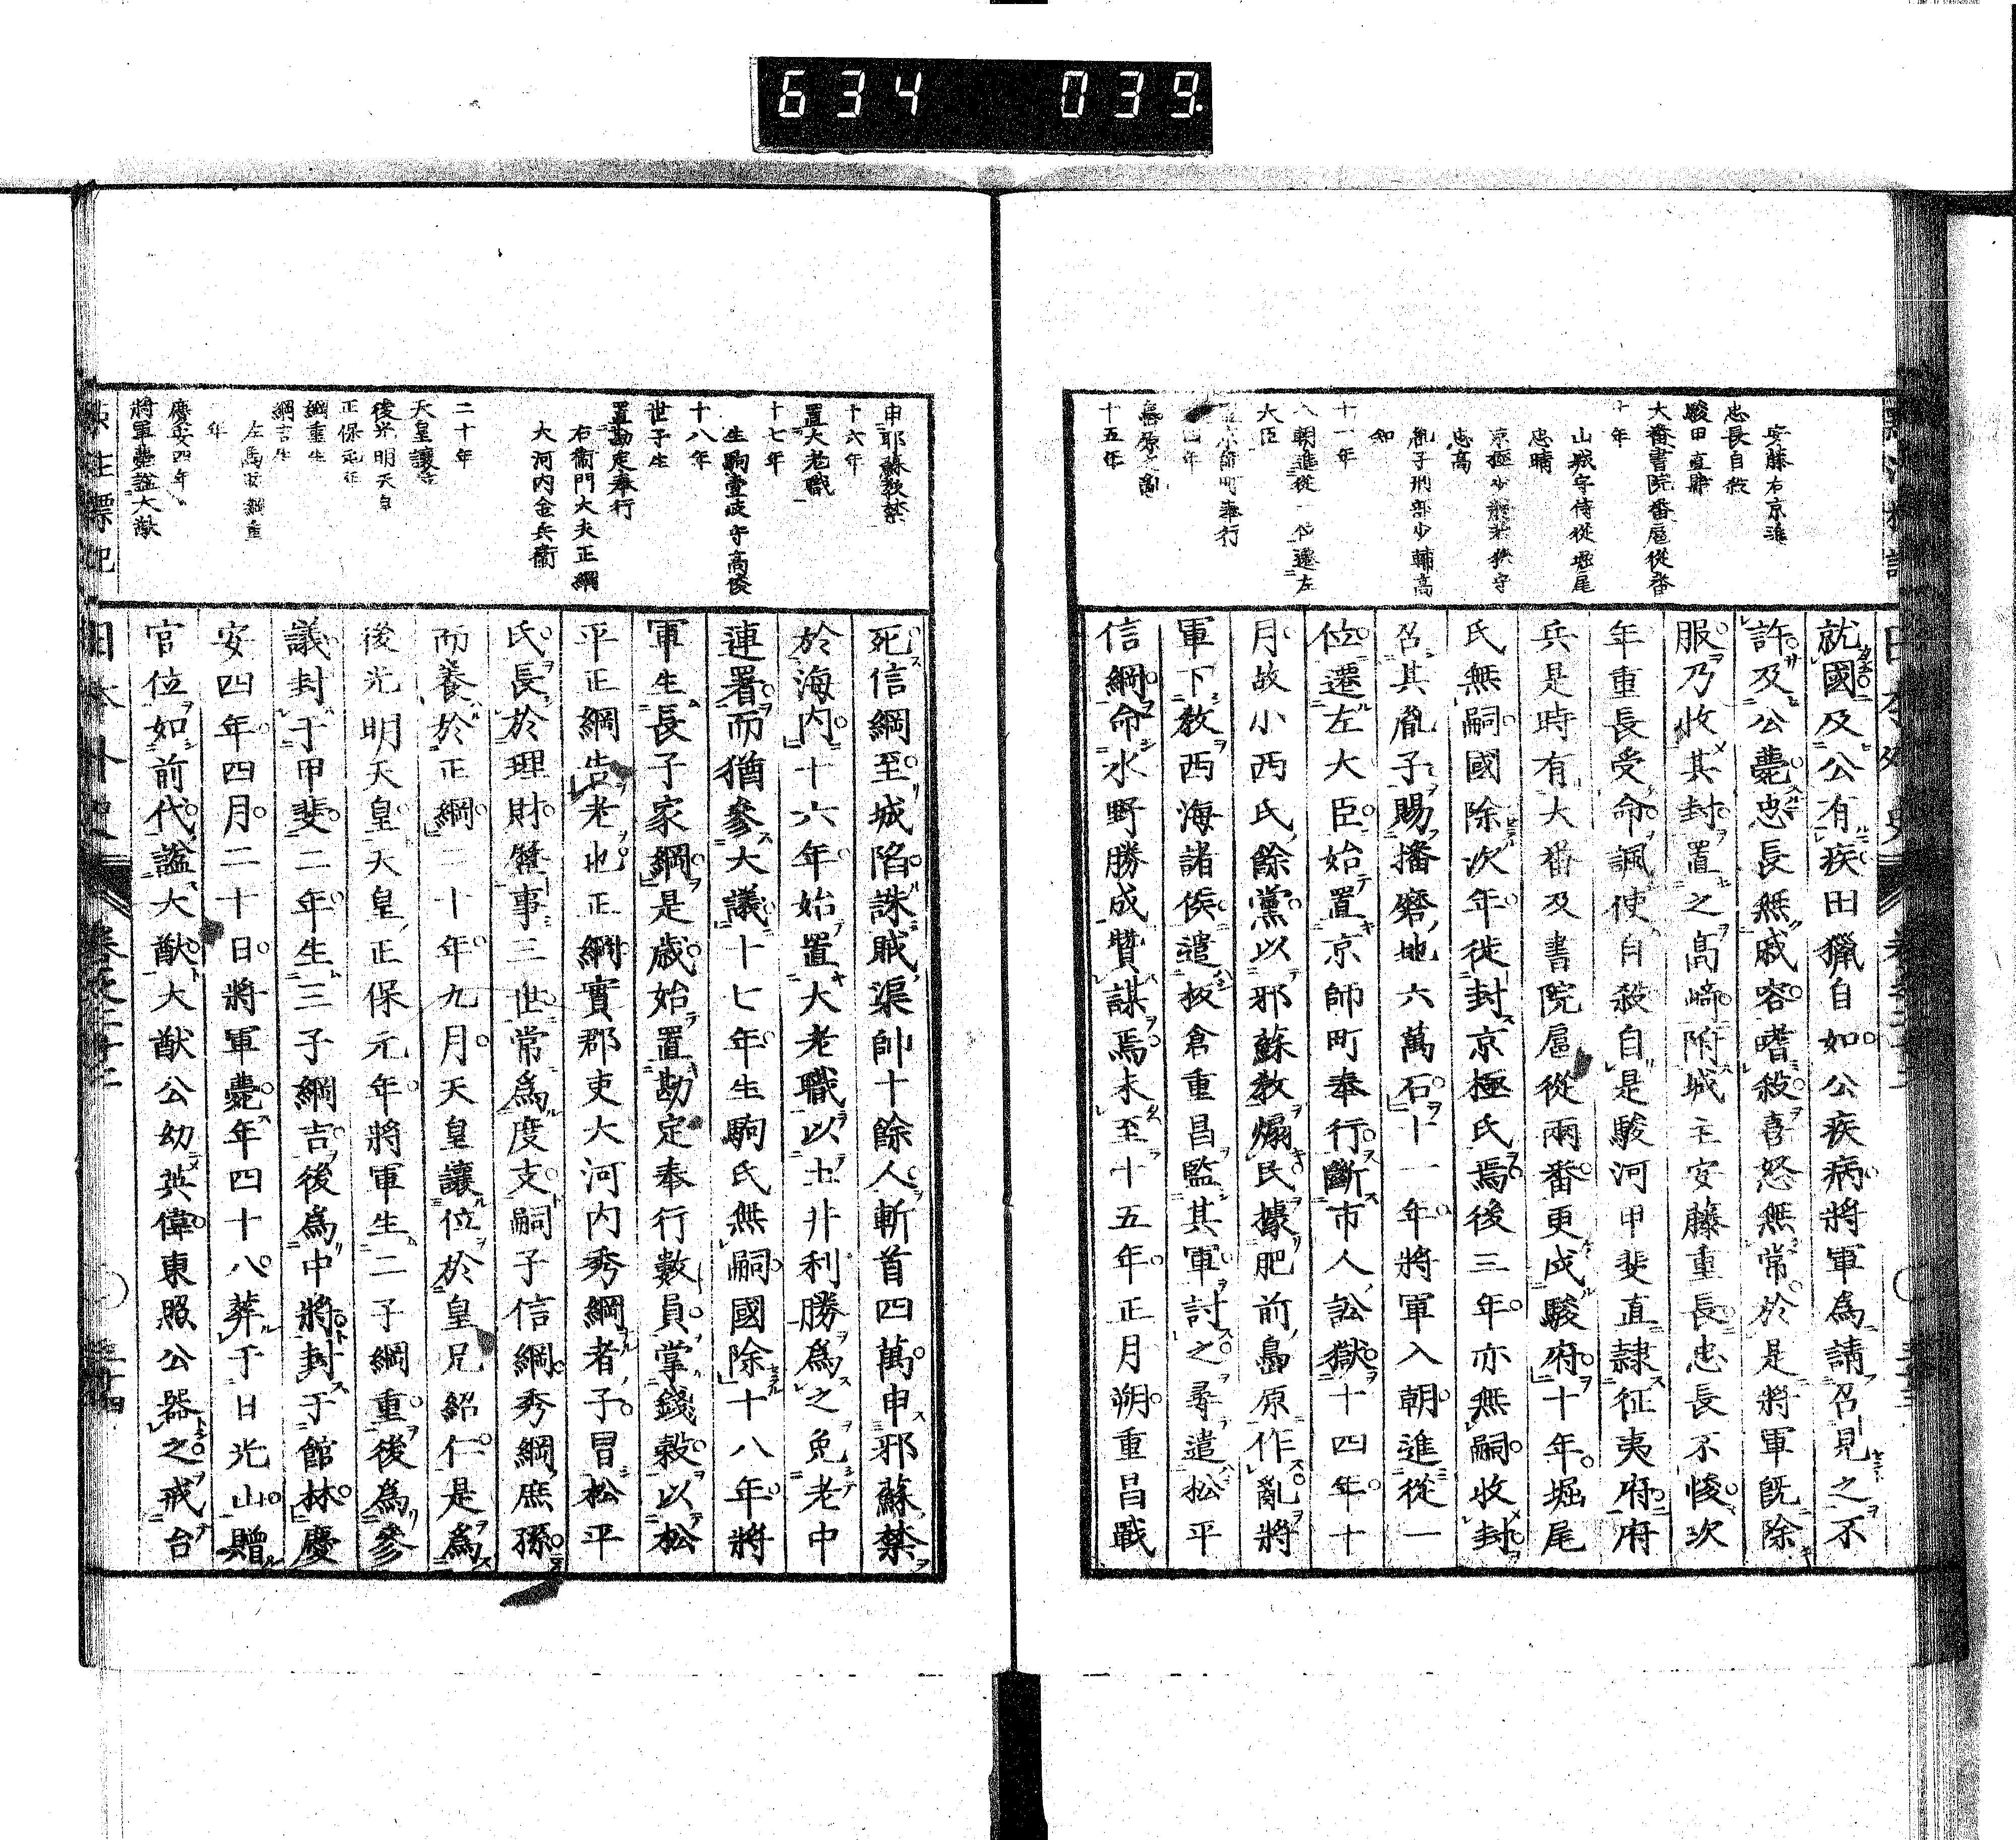 634 039.
安藤右京進
忠長自殺
駿甲直隷
大番書院番扈從番
十年
山城守侍從堀尾
忠晴
京極少將若狹守
忠高
胤子刑部少輔高
和
十一年
入朝進從一位遷左
大臣
島原之亂
十五年
就國及公有疾田獵自如公疾病將軍爲請召見之不
許及公薨忠長無戚容嗜殺喜怒無常於是將軍既除
服乃收其封置之高崎附城主安藤重長忠長不悛次
年重長受命諷使自殺自是駿河甲斐直隷征夷府府
兵是時有大番及書院扈從兩番更戍駿府十年堀尾
氏無嗣國除次年徙封京極氏焉後三年亦無嗣收封
召其胤子賜播磨地六萬石十一年將軍入朝進從一
位遷左大臣始置京師町奉行斷市人訟獄十四年十
月故小西氏餘黨以邪蘇教煽民據肥前島原作亂將
軍下教西海諸侯遣板倉重昌監其軍討之尋遣松平
信綱命水野勝成贊謀焉未至十五年正月朔重昌戰
申耶蘇教禁
十六年
置大老職
十七年
生駒壹岐守高俊
十八年
世子生
置勘定奉行
右衞門大夫正綱
大河内金兵衞
二十年
天皇讓位
後光明天皇
正保元年
綱重生
綱吉生
左馬頭綱重
慶安四年
將軍薨諡大猷
死信綱至城陷誅賊渠帥十餘人斬首四萬申邪蘇禁
於海内十六年始置大老職以土井利勝爲之免老中
連署而猶參大議十七年生駒氏無嗣國除十八年將
軍生長子家綱是歲始置勘定奉行數員掌錢穀以松
平正綱告老也正綱實郡吏大河内秀綱者子冒松平
氏長於理財歷事三世常爲度支嗣子信綱秀綱庶孫
而養於正綱二十年九月天皇讓位於皇兄紹仁是爲
後光明天皇天皇正保元年將軍生二子綱重後爲參
議封于甲斐二年生三子綱吉後爲中將封于館林慶
安四年四月二十日將軍薨年四十八葬于日光山贈
官位如前代諡大猷大猷公幼英偉東照公器之戒台